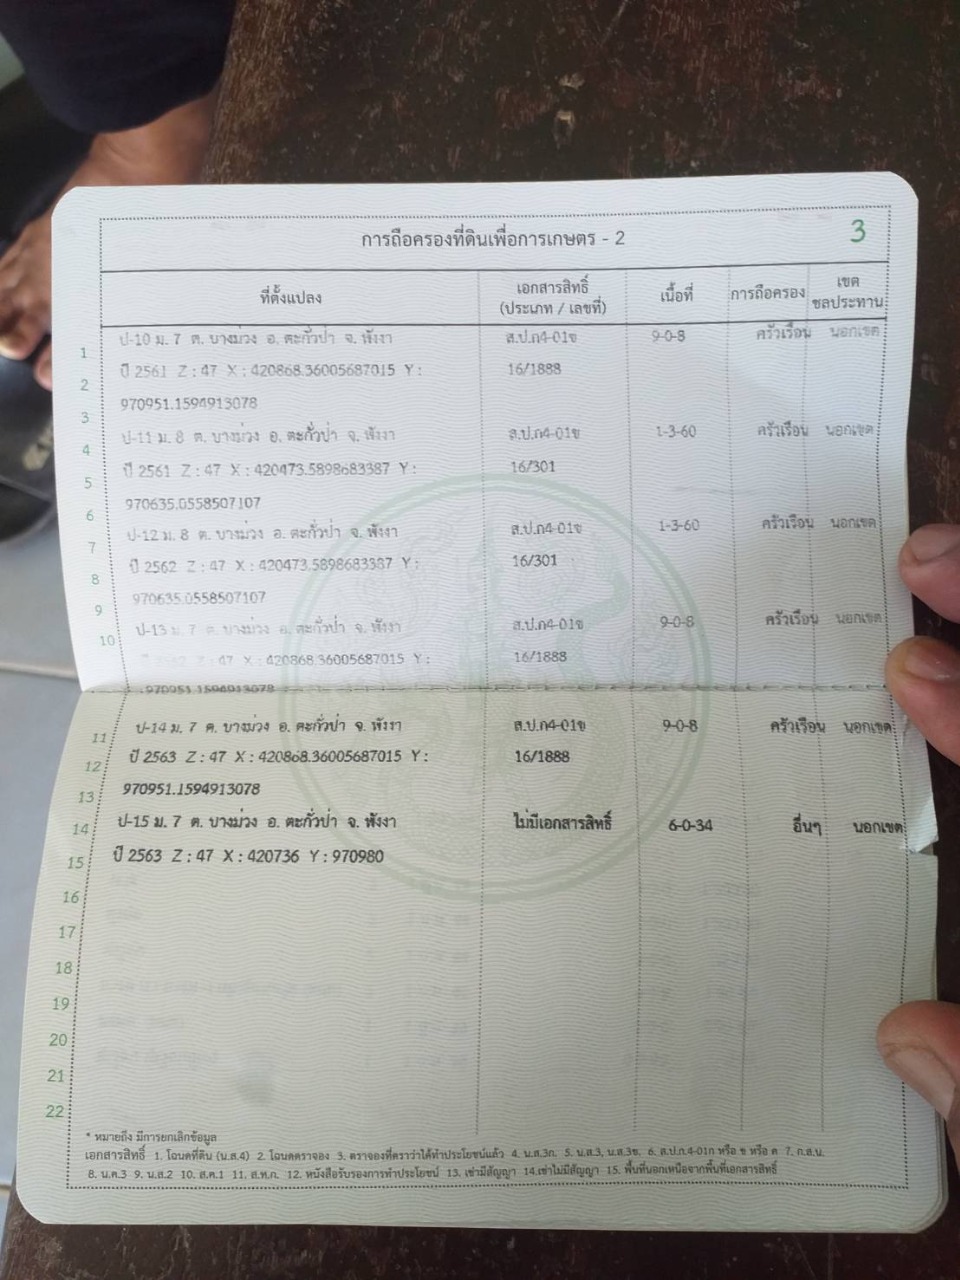 การถือครองที่ดินเพื่อการเกษตร - 2
3
ที่ตั้งแปลง เอกสารสิทธิ์ (ประเภท / เลขที่) เนื้อที่ การถือครอง เขตชลประทาน
1 ป-10 ม. 7 ต. บางม่วง อ. ตะกั่วป่า จ. พังงา ส.ป.ก4-01ข 9-0-8 ครัวเรือน นอกเขต
2 ปี 2561 Z : 47 X : 420868.36005687015 Y : 16/1888
3 970951.1594913078
4 ป-11 ม. 8 ต. บางม่วง อ. ตะกั่วป่า จ. พังงา ส.ป.ก4-01ข 1-3-60 ครัวเรือน นอกเขต
5 ปี 2561 Z : 47 X : 420473.5898683387 Y : 16/301
6 970635.0558507107
7 ป-12 ม. 8 ต. บางม่วง อ. ตะกั่วป่า จ. พังงา ส.ป.ก4-01ข 1-3-60 ครัวเรือน นอกเขต
8 ปี 2562 Z : 47 X : 420473.5898683387 Y : 16/301
9 970635.0558507107
10 ป-13 ม. 7 ต. บางม่วง อ. ตะกั่วป่า จ. พังงา ส.ป.ก4-01ข 9-0-8 ครัวเรือน นอกเขต
ปี 2562 Z : 47 X : 420868.36005687015 Y : 16/1888
970951.1594913078
11 ป-14 ม. 7 ต. บางม่วง อ. ตะกั่วป่า จ. พังงา ส.ป.ก4-01ข 9-0-8 ครัวเรือน นอกเขต
12 ปี 2563 Z : 47 X : 420868.36005687015 Y : 16/1888
13 970951.1594913078
14 ป-15 ม. 7 ต. บางม่วง อ. ตะกั่วป่า จ. พังงา ไม่มีเอกสารสิทธิ์ 6-0-34 อื่นๆ นอกเขต
15 ปี 2563 Z : 47 X : 420736 Y : 970980
16
17
18
19
20
21
22
* หมายถึง มีการยกเลิกข้อมูล
เอกสารสิทธิ์ 1. โฉนดที่ดิน (น.ส.4) 2. โฉนดตราจอง 3. ตราจองที่ตราว่าได้ทำประโยชน์แล้ว 4. น.ส.3ก. 5. น.ส.3, น.ส.3ข. 6. ส.ป.ก.4-01ก หรือ ข หรือ ค 7. ก.ส.น.
8. น.ค.3 9. น.ส.2 10. ส.ค.1 11. ส.ท.ก. 12. หนังสือรับรองการทำประโยชน์ 13. เช่ามีสัญญา 14.เช่าไม่มีสัญญา 15. พื้นที่นอกเหนือจากพื้นที่เอกสารสิทธิ์